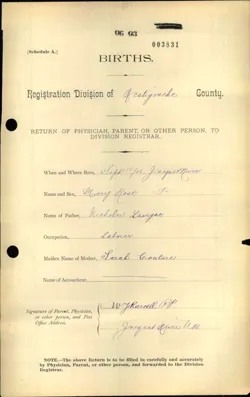 96 03
(Schedule A.)
003831
BIRTHS.
Registration Division of Restigouche County.
RETURN OF PHYSICIAN, PARENT, OR OTHER PERSON, TO
DIVISION REGISTRAR.
When and Where Born, Sept Jacquet River
Name and Sex, Mary Rose F.
Name of Father, Nicholas
Occupation, Laborer
Maiden Name of Mother, Sarah Couture
Name of Accoucheur:
Signature of Parent, Physician,
or other person, and Post
Office Address.
Jacquet River N.B
NOTE.—The above Return is to be filled in carefully and accurately
by Physician, Parent, or other person, and forwarded to the Division
Registrar.